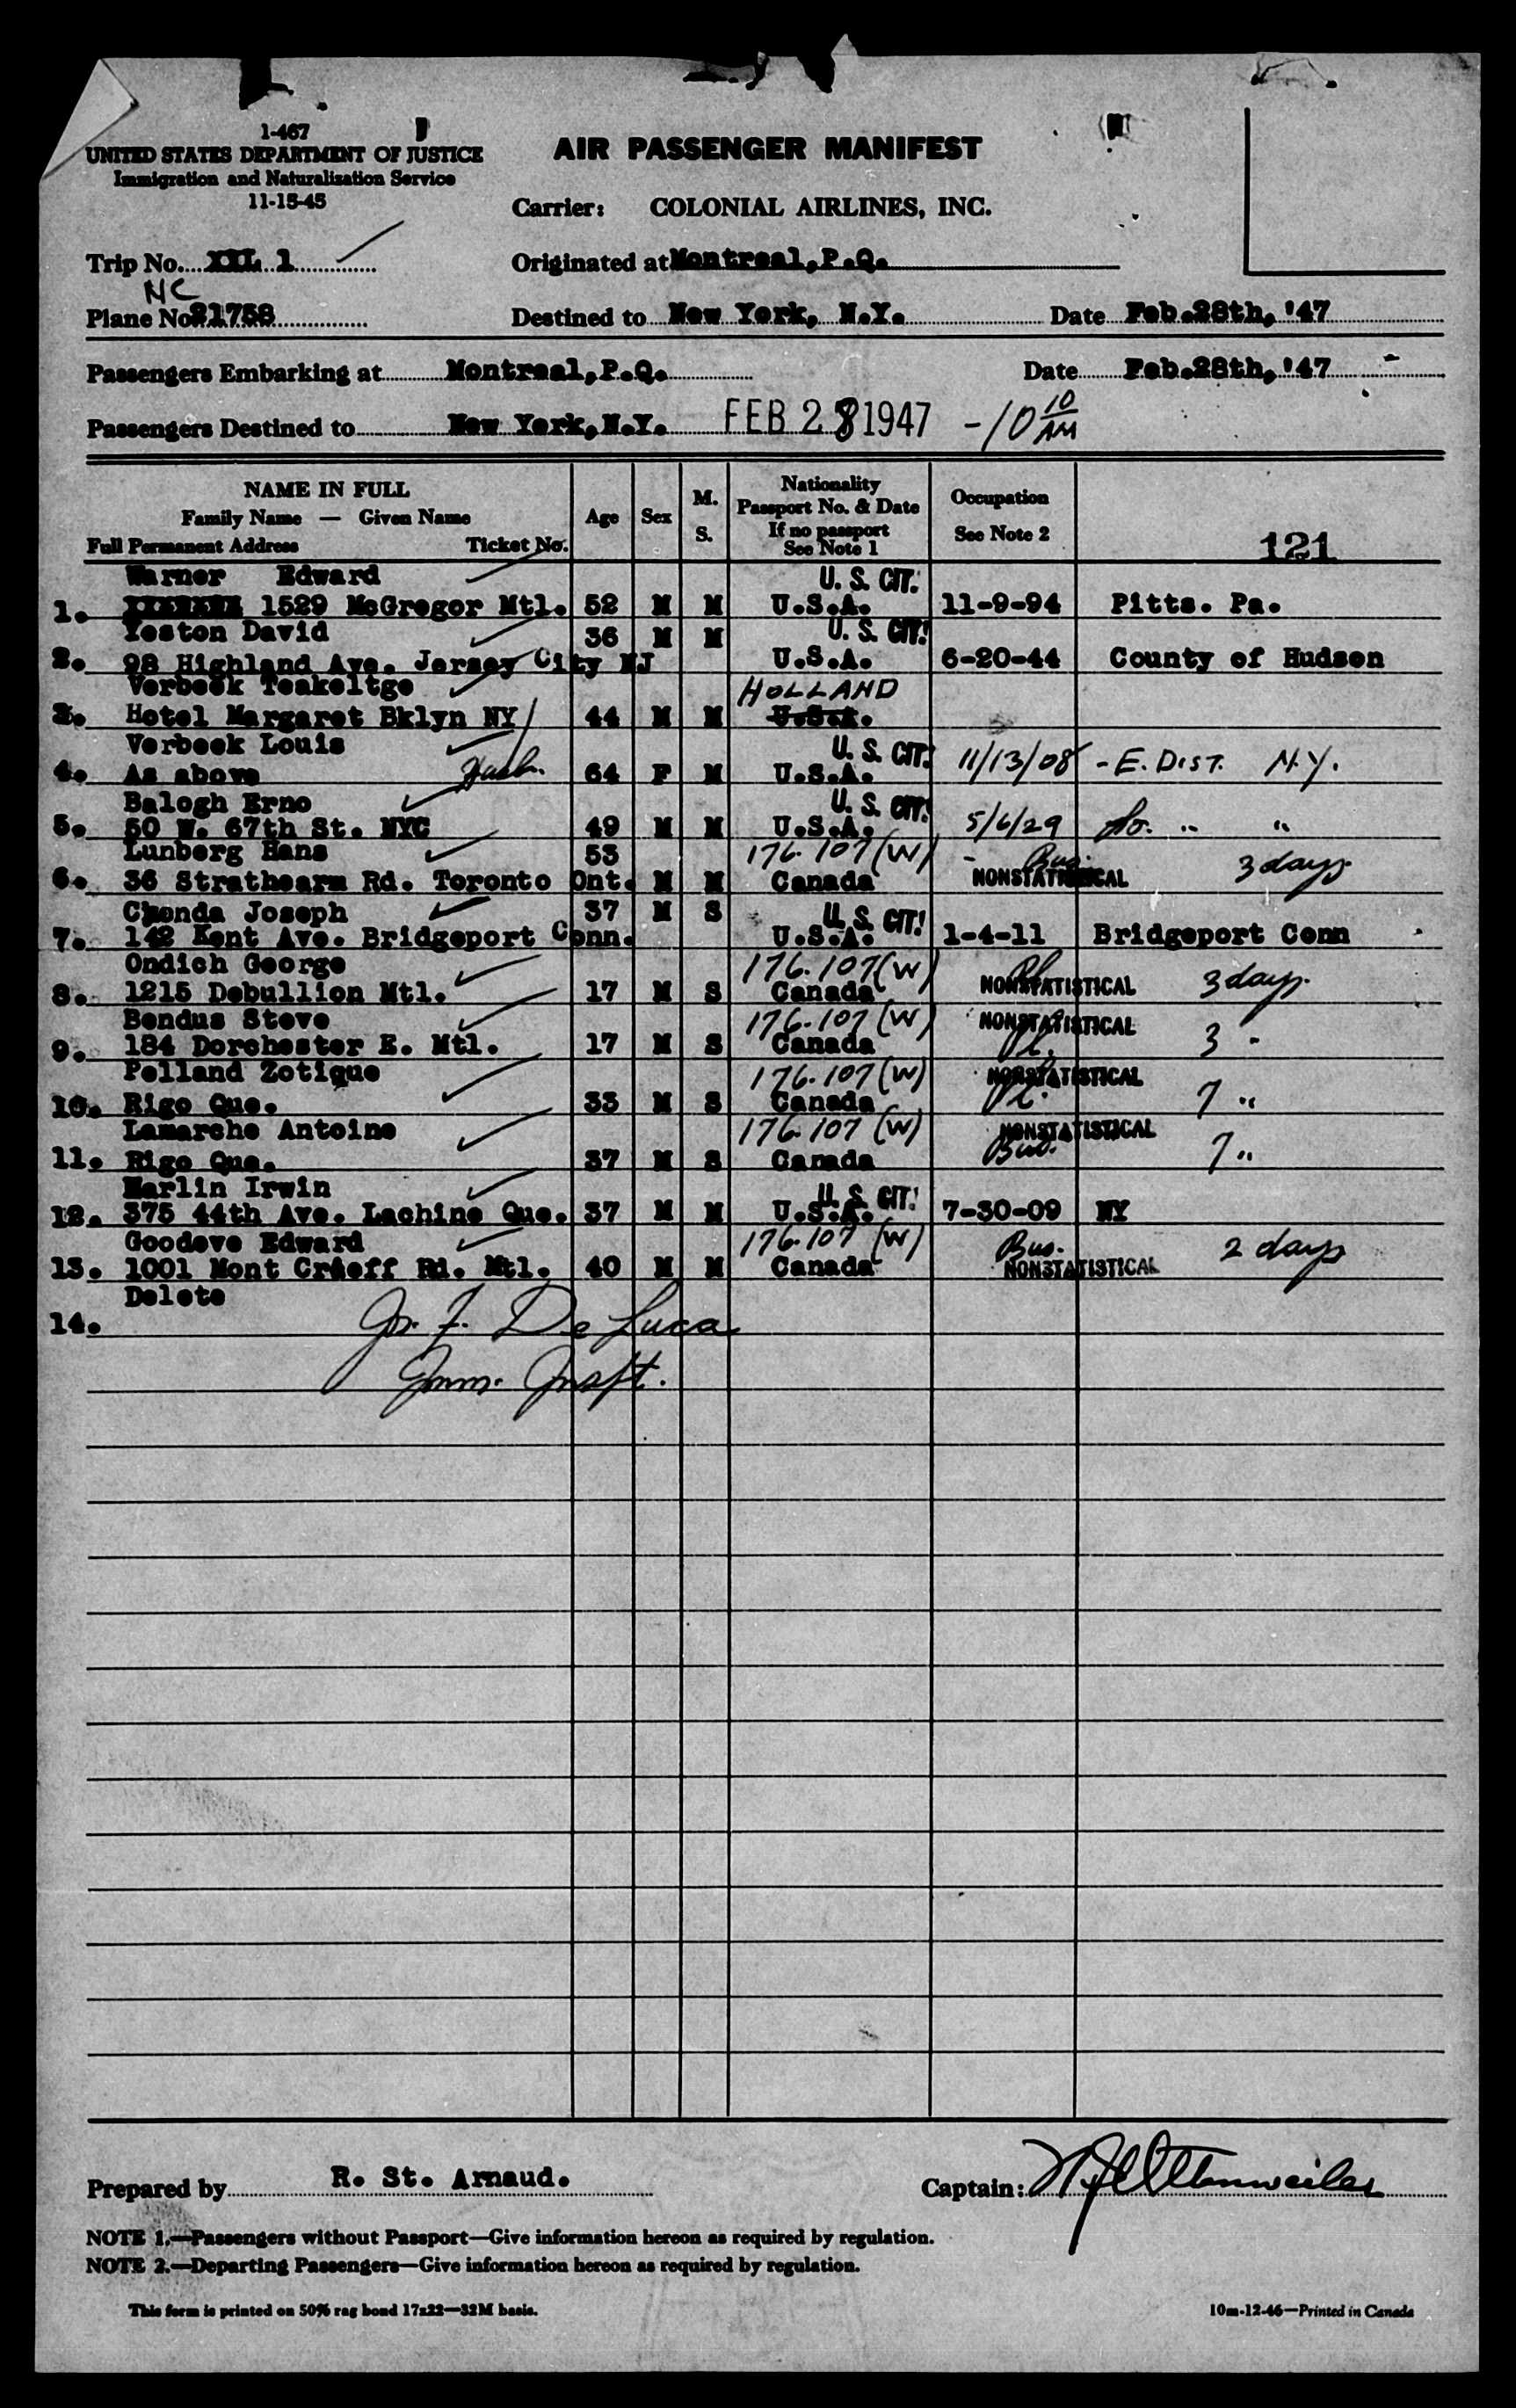 1-467
UNITED STATES DEPARTMENT OF JUSTICE
Immigration and Naturalization Service
11-15-45
AIR PASSENGER MANIFEST
Carrier: COLONIAL AIRLINES, INC.
Trip No. XXL 1
Originated at Montreal,P.Q.
NC
Plane No. 21758
Destined to New York, N.Y. Date Feb.28th,'47
Passengers Embarking at Montreal,P.Q. Date Feb.28th,'47
Passengers Destined to New York,N.Y. FEB 28 1947 -10 10 AM
NAME IN FULL
Family Name — Given Name
Full Permanent Address Ticket No.
Age
Sex
M. S.
Nationality
Passport No. & Date
If no passport
See Note 1
Occupation
See Note 2
121
Warner Edward U. S. CIT.
1. 1529 McGregor Mtl. 52 M M U.S.A. 11-9-94 Pitts. Pa.
Yoston David 36 M M U. S. CIT.
2. 98 Highland Ave. Jersey City NJ U.S.A. 6-20-44 County of Hudson
Verbeek Teakeltge HOLLAND
3. Hotel Margaret Bklyn NY 44 M M U.S.A.
Verbeek Louis U. S. CIT.
4. As above 64 F M U.S.A. 11/13/08 - E. DIST. N.Y.
Balogh Erno U. S. CIT.
5. 50 W. 67th St. NYC 49 M M U.S.A. 5/6/29 So. " "
Lunberg Hans 53 176.107(W) Bus. 3 days
6. 36 Strathearn Rd. Toronto Ont. M M Canada NONSTATISTICAL
Chonda Joseph 37 M S U. S. CIT.
7. 142 Kent Ave. Bridgeport Conn. U.S.A. 1-4-11 Bridgeport Conn
Ondich George 176.107(W) Pl. 3 days
8. 1215 Debullion Mtl. 17 M S Canada NONSTATISTICAL
Bendus Steve 176.107(W) NONSTATISTICAL
9. 184 Dorchester E. Mtl. 17 M S Canada Pl. 3 "
Pelland Zotique 176.107(W) NONSTATISTICAL
10. Rigo Que. 33 M S Canada Pl. 7 "
Lamarche Antoine 176.107(W) NONSTATISTICAL
11. Rigo Que. 37 M S Canada Bus. 7 "
Marlin Irwin U. S. CIT.
12. 375 44th Ave. Lachine Que. 37 M M U.S.A. 7-30-09 NY
Goodeve Edward 176.107(W) Bus. 2 days
13. 1001 Mont Craeff Rd. Mtl. 40 M M Canada NONSTATISTICAL
Delete
14. De Luca
Imm. Inspt.
Prepared by R. St. Arnaud.
Captain:
NOTE 1.—Passengers without Passport—Give information hereon as required by regulation.
NOTE 2.—Departing Passengers—Give information hereon as required by regulation.
This form is printed on 50% rag bond 17x22—32M basis.
10m-12-46—Printed in Canada